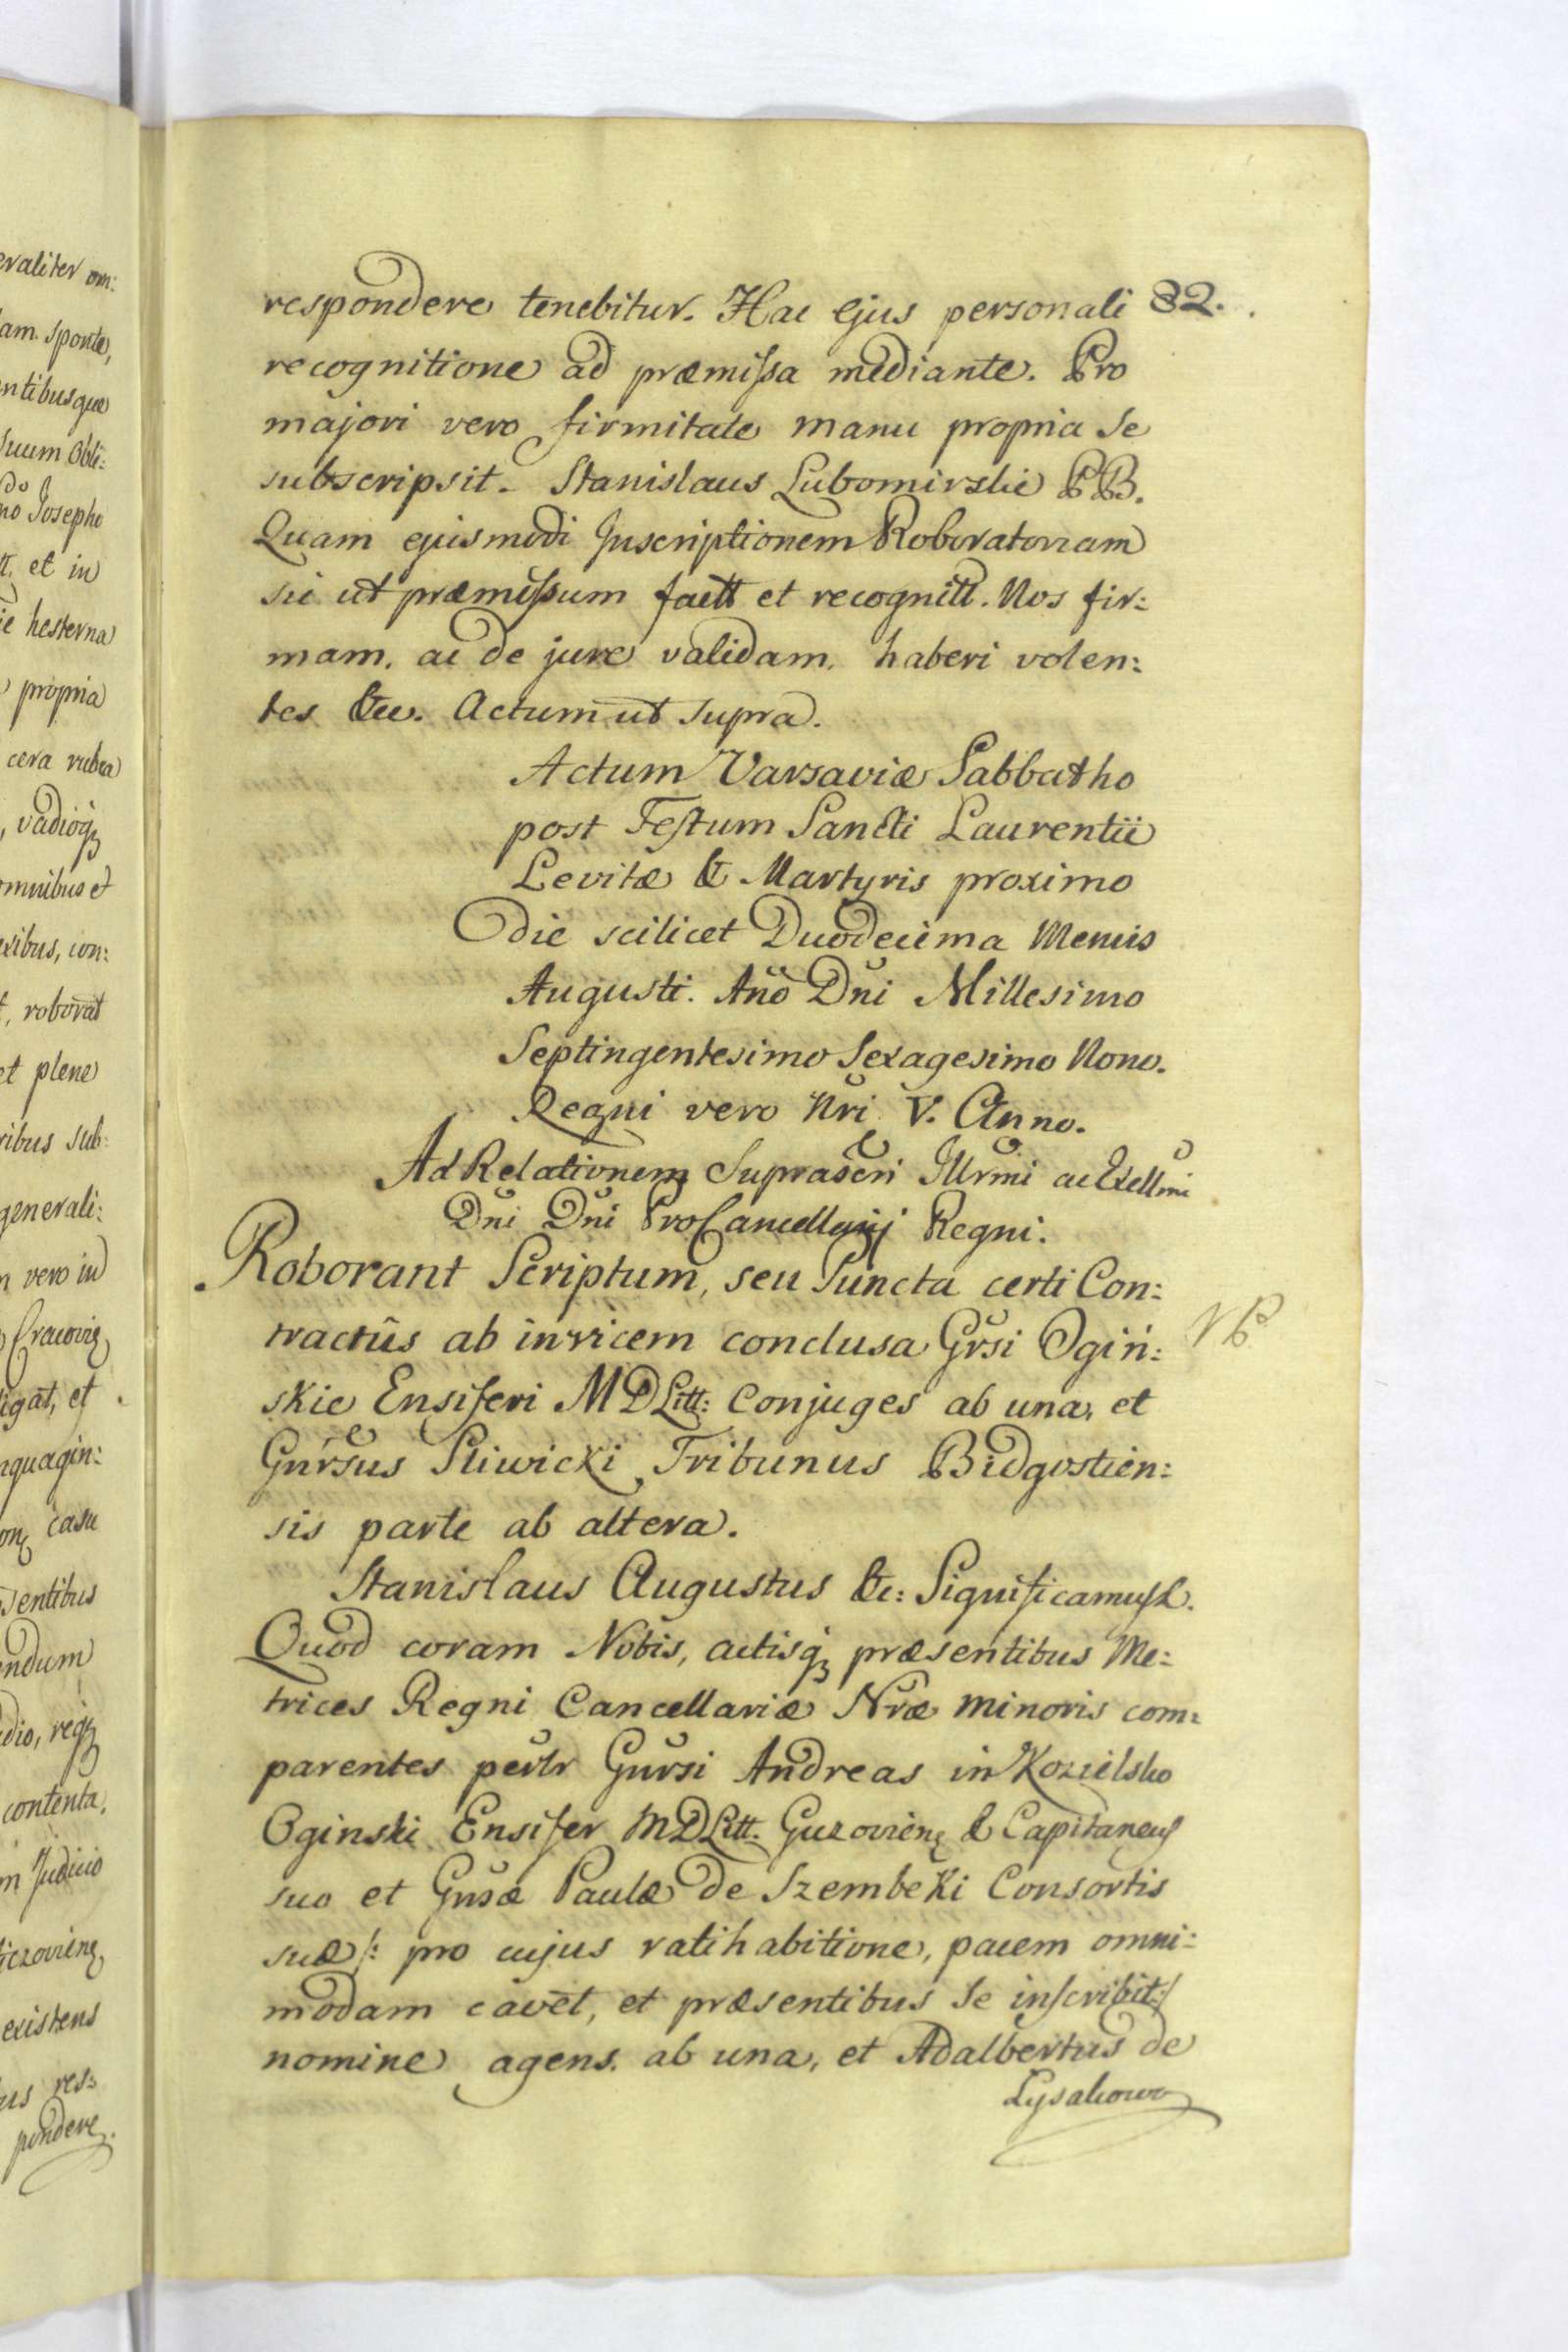 respondere tenebitur. Hac ejus personali 32.
recognitione ad præmissa mediante. Pro
majori vero firmitate manu propria se
subscripsit. Stanislaus Lubomirski PB.
Quam ejusmodi Inscriptionem Roboratoriam
sic ut præmissum factt et recognitt. Nos fir:
mam, ac de jure validam, haberi volen:
tes &cc. Actum ut supra.
Actum Varsaviæ Sabbatho
post Festum Sancti Laurentii
Levitæ & Martyris proximo
die scilicet Duodecima Mensis
Augusti. Año Dni Millesimo
Septingentesimo Sexagesimo Nono.
Regni vero Nri V. Anno.
Ad Relationem Suprascri Illrmi ac Excellmi
Dni Dni ProCancellarij Regni.
Roborant Scriptum, seu Puncta certi Con:
tractûs ab invicem conclusa Grsi Ogiń:
skie Ensiferi MDLitt: Conjuges ab una, et
Gnrsus Sliwicki Tribunus Bidgostien:
sis parte ab altera.
Stanislaus Augustus &c: Significamus &.
Quod coram Nobis, actisq; præsentibus Me:
trices Regni Cancellariæ Nræ minoris com:
parentes perlr Gnrsi Andreas in Kozielsko
Oginski Ensifer MDLitt. Guzovien; & Capitaneus
suo et Gnsæ Paulæ de Szembeki Consortis
suæ /: pro cujus ratihabitione, pacem omni:
modam cavet, et præsentibus se inscribit :/
nomine agens. ab una, et Adalbertus de
Lysakowo
eraliter om:
am. sponte,
entibusque
suum Obli:
no Josepho
tt. et in
ie hesterna
propria
cera rubra
, vadioq;
omnibus et
exibus, con:
t, roborat
et plene
ribus sub:
generali:
m vero in
Cracovię
ligat, et
nquagin:
casu
sentibus
endum
dio, req;
contenta,
m Judicio
iczovien;
existens
us res:
pondere.